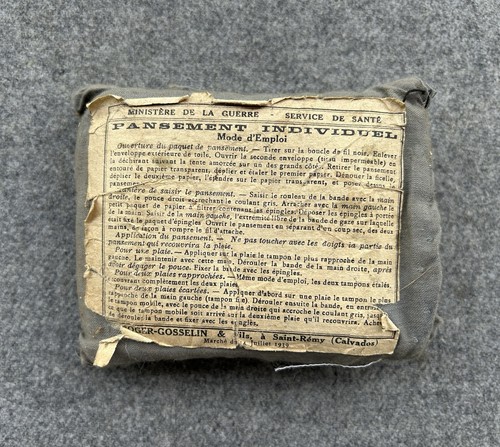 MINISTÈRE DE LA GUERRE SERVICE DE SANTÉ
PANSEMENT INDIVIDUEL
Mode d'Emploi
Ouverture du paquet de pansement. — Tirer sur la boucle de fil noir. Enlever
l'enveloppe extérieure de toile. Ouvrir la seconde enveloppe (tissu imperméable) en
la déchirant suivant la fente amorcée sur un des grands côtés. Retirer le pansement
entouré de papier transparent, déplier et étaler le premier papier. Dénouer la ficelle,
déplier le deuxième papier, l'étendre sur le papier transparent, et poser dessus le
pansement
Manière de saisir le pansement. — Saisir le rouleau de la bande avec la main
droite, le pouce droit accrochant le coulant gris. Arracher avec la main gauche le
petit paquet de papier à filtrer contenant les épingles. Déposer les épingles à portée
de la main. Saisir de la main gauche, l'extrémité libre de la bande de gaze sur laquelle
était fixé le paquet d'épingles Ouvrir le pansement en séparant d'un coup sec, des deux
mains, de façon à rompre le fil d'attache.
Application du pansement. — Ne pas toucher avec les doigts la partie du
pansement qui recouvrira la plaie.
Pour une plaie. — Appliquer sur la plaie le tampon le plus rapproché de la main
gauche. Le maintenir avec cette main. Dérouler la bande de la main droite, après
avoir dégager le pouce. Fixer la bande avec les épingles.
Pour deux plaies rapprochées. — Même mode d'emploi, les deux tampons étalés,
couvrant complètement les deux plaies
Pour deux plaies écartées. — Appliquer d'abord sur une plaie le tampon le plus
rapproché de la main gauche (tampon fixe). Dérouler ensuite la bande, en entraînant
le tampon mobile, avec le pouce de la main droite qui accroche le coulant gris, jusqu'à
ce que le tampon mobile soit arrivé sur la deuxième plaie qu'il recouvrira. Achever
de dérouler la bande et fixer avec les épingles.
ROGER-GOSSELIN & Fils, à Saint-Rémy (Calvados)
Marché du Juillet 1939